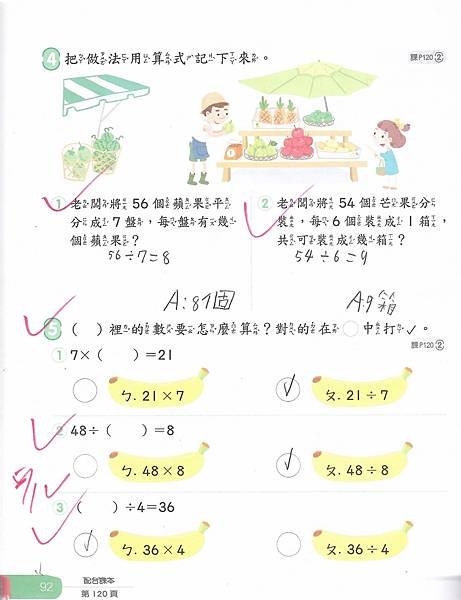 4 把做法用算式記下來。 課P120②
1 老闆將56個蘋果平
分成7盤，每盤有幾
個蘋果？
56÷7=8
A:8個
2 老闆將54個芒果分
裝，每6個裝成1箱，
共可裝成幾箱？
54÷6=9
A:9箱
5 （ ）裡的數要怎麼算？對的在○中打✓。
課P120②
1 7×（ ）=21
ㄅ. 21×7
✓ ㄆ. 21÷7
2 48÷（ ）=8
ㄅ. 48×8
✓ ㄆ. 48÷8
3 （ ）÷4=36
✓ ㄅ. 36×4
ㄆ. 36÷4
92
配合課本
第120頁